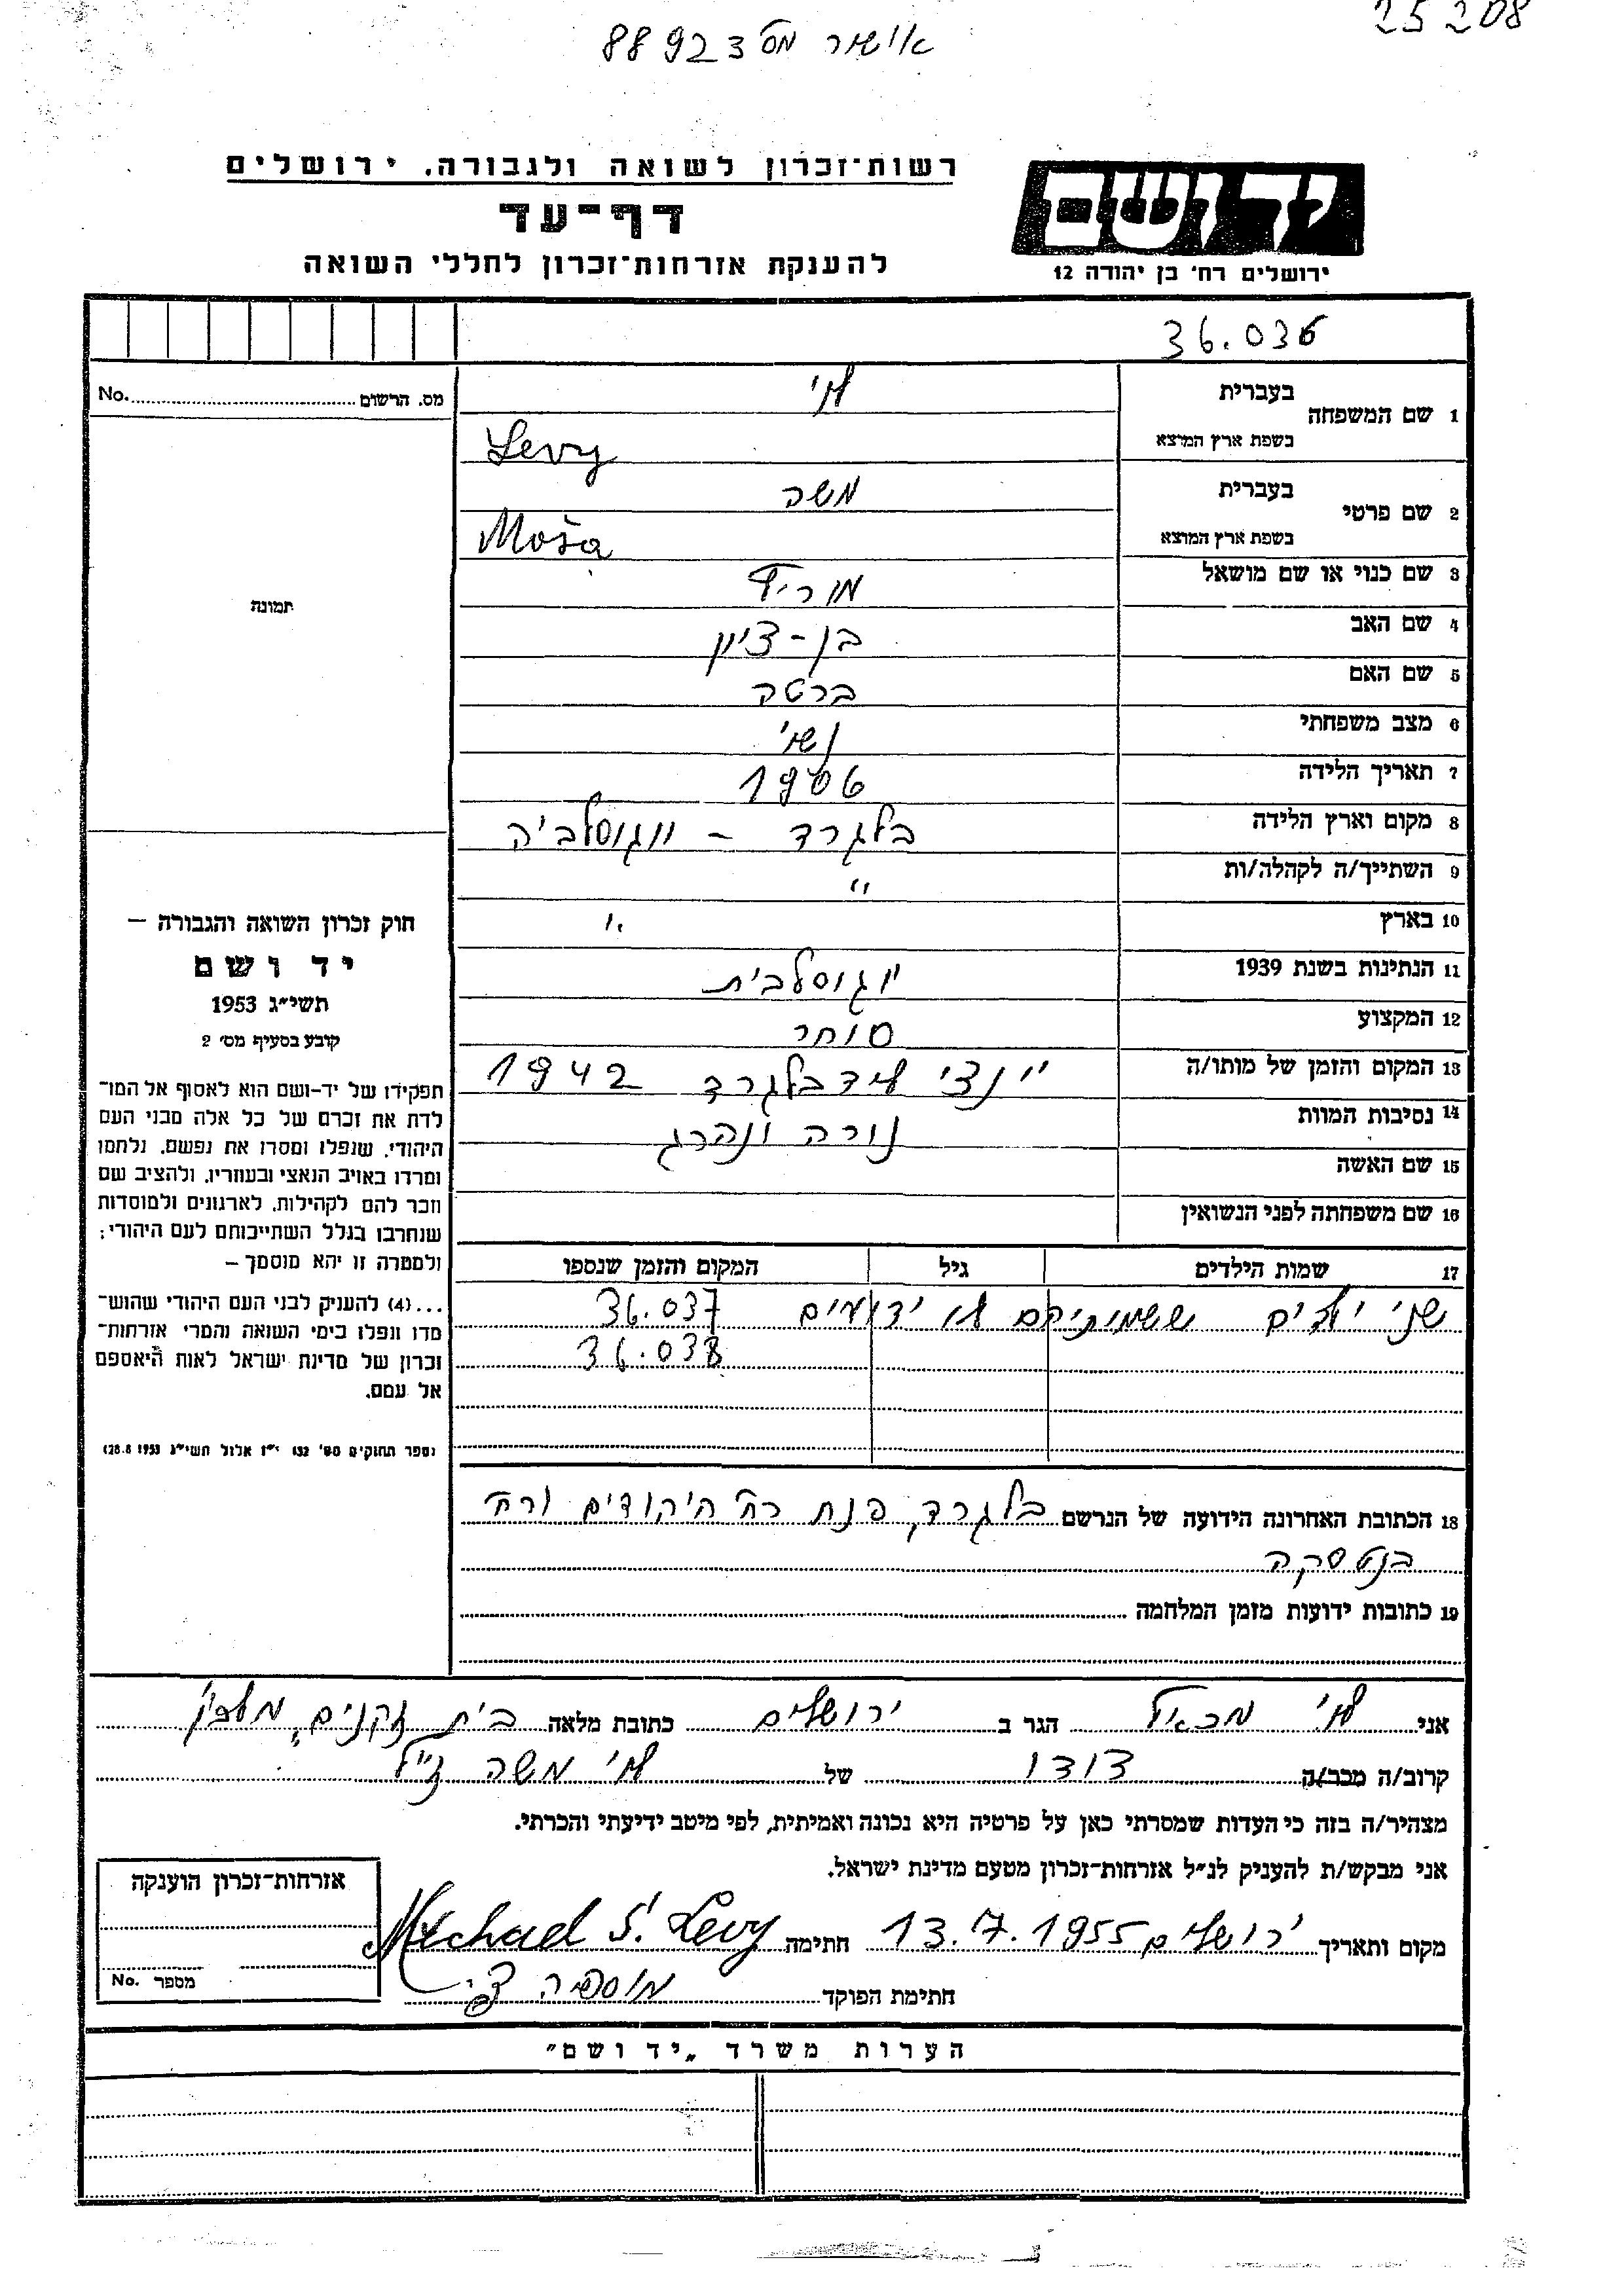 25208
אישור מס 88923
רשות־זכרון לשואה ולגבורה. ירושלים
דף־עד
להענקת אזרחות־זכרון לחללי השואה
יד ושם
ירושלים רח' בן יהודה 12
36.036
מס. הרשום No.
תמונה
1 שם המשפחה בעברית לוי
בשפת ארץ המוצא Levy
2 שם פרטי בעברית משה
בשפת ארץ המוצא Moša
3 שם כנוי או שם מושאל מוריץ
4 שם האב בן-ציון
5 שם האם ברטה
6 מצב משפחתי נשוי
7 תאריך הלידה 1906
8 מקום וארץ הלידה בלגרד – יוגוסלביה
9 השתייך/ה לקהלה/ות "
10 בארץ "
11 הנתינות בשנת 1939 יוגוסלבית
12 המקצוע סוחר
13 המקום והזמן של מותו/ה יינצי ליד בלגרד 1942
14 נסיבות המוות נורה ונהרג
15 שם האשה
16 שם משפחתה לפני הנשואין
17 שמות הילדים גיל המקום והזמן שנספו
שני ילדים ששמותיהם לא ידועים 36.037
36.038
18 הכתובת האחרונה הידועה של הנרשם בלגרד, פנת רח' היהודים ורח'
19 כתובות ידועות מזמן המלחמה
חוק זכרון השואה והגבורה –
יד ושם
תשי״ג 1953
קובע בסעיף מס׳ 2
תפקידו של יד-ושם הוא לאסוף אל המו־
לדת את זכרם של כל אלה מבני העם
היהודי, שנפלו ומסרו את נפשם, נלחמו
ומרדו באויב הנאצי ובעוזריו, ולהציב שם
וזכר להם לקהילות, לארגונים ולמוסדות
שנחרבו בגלל השתייכותם לעם היהודי;
ולמטרה זו יהא מוסמך –
...(4) להעניק לבני העם היהודי שהוש־
מדו ונפלו בימי השואה והמרי אזרחות־
זכרון של מדינת ישראל לאות היאספם
אל עמם.
(ספר החוקים מס' 132 י״ז אלול תשי״ג 28.8.1953)
אני לוי מכאל הגר ב ירושלים כתובת מלאה בית זקנים, מלבן
קרוב/ה מכר/ה דודו של לוי משה ז״ל
מצהיר/ה בזה כי העדות שמסרתי כאן על פרטיה היא נכונה ואמיתית, לפי מיטב ידיעתי והכרתי.
אני מבקש/ת להעניק לנ״ל אזרחות־זכרון מטעם מדינת ישראל.
מקום ותאריך ירושלים 13.7.1955 חתימה Michael S. Levy
חתימת הפוקד
אזרחות־זכרון הוענקה
מספר No.
הערות משרד „יד ושם"